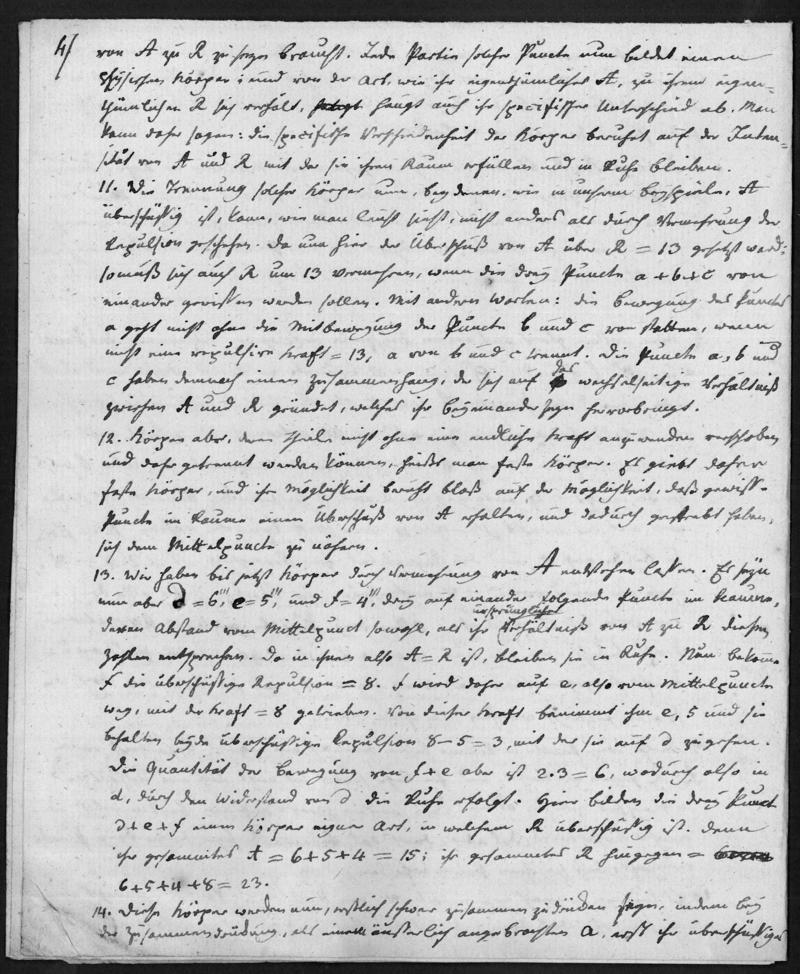 4/
von A zu R zu sezen braucht. Jede Partie solcher Puncte nun bildet einen
physischen Körper; und von der Art, wie ihr eigenthümliches A, zu ihrem eigen-
thümlichen R sich verhält, hängt auch ihr specifischer Unterschied ab. Man
kann daher sagen: die specifische Verschiedenheit der Körper beruhet auf der Inten-
sität von A und R mit der sie ihren Raum erfüllen und in Ruhe bleiben.
11. Die Trennung solcher Körper nun, bey denen, wie in unserm Beyspiele, A
überschüssig ist, kann, wie man leicht sieht, nicht anders als durch Vermehrung der
Repulsion geschehen. Da nun hier der Überschuß von A über R = 13 gesetzt ward:
so muß sich auch R um 13 vermehren, wenn die drey Puncte a + b + c von
einander gerissen werden sollen. Mit andern Worten: die Bewegung des Punctes
a geht nicht ohne die Mitbewegung der Puncte b und c von statten, wenn
nicht eine repulsive Kraft = 13, a von b und c trennt. Die Puncte a, b und
c haben demnach einen Zusammenhang, der sich auf das wechselseitige Verhältniß
zwischen A und R gründet, welches ihr Beyeinanderseyn hervorbringt.
12. Körper aber, deren Theile nicht ohne eine endliche Kraft anzuwenden verschoben
und daher getrennt werden können, heißt man feste Körper. Es giebt daher
feste Körper, und ihre Möglichkeit beruht bloß auf der Möglichkeit, daß gewisse
Puncte im Raume einen Überschuß von A erhalten, und dadurch gestrebt haben,
sich dem Mittelpuncte zu nähern.
13. Wir haben bis jetzt Körper durch Vermehrung von A entstehen lassen. Es seyn
nun aber d = 6''', e = 5''', und f = 4''', drey auf einander folgende Puncte im Raume,
deren Abstand vom Mittelpunct sowohl, als ihr ursprüngliches Verhältniß von A zu R diesen
Zahlen entsprechen. Da in ihnen also A = R ist, bleiben sie in Ruhe. Nun bekomme
f die überschüssige Repulsion = 8. f wird daher auf e, also vom Mittelpuncte
weg, mit der Kraft = 8 getrieben. Von dieser Kraft benimmt ihm e, 5 und sie
behalten beyde überschüssige Repulsion 8 – 5 = 3, mit der sie auf d zugehen.
Die Quantität der Bewegung von f + e aber ist 2.3 = 6, wodurch also in
d, durch den Widerstand von d die Ruhe erfolgt. Hier bilden die drey Puncte
d + e + f einen Körper eigner Art, in welchem R überschüssig ist. Denn
ihr gesammtes A = 6 + 5 + 4 = 15; ihr gesammtes R hingegen =
6 + 5 + 4 + 8 = 23.
14. Diese Körper werden nun, erstlich schwer zusammen zu drücken seyn, indem bey
der Zusammendrückung, als einem äusserlich angebrachten A, erst ihr überschüssiges